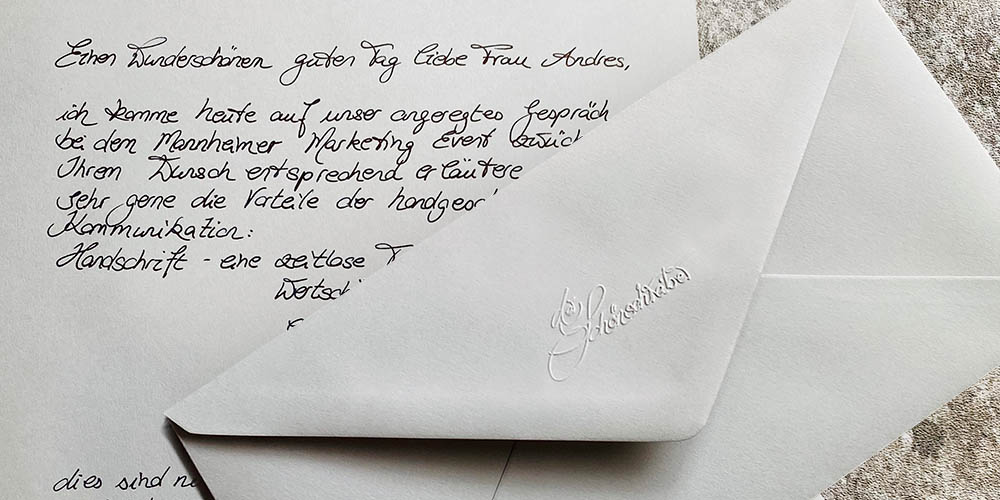 Einen Wunderschönen guten Tag liebe Frau Andres,
ich komme heute auf unser angeregtes Gespräch
bei dem Mannheimer Marketing Event zurück
Ihrem Wunsch entsprechend erläutere
sehr gerne die Vorteile der
Kommunikation:
Handschrift - eine zeitlose
die Schönschreiber
dies sind